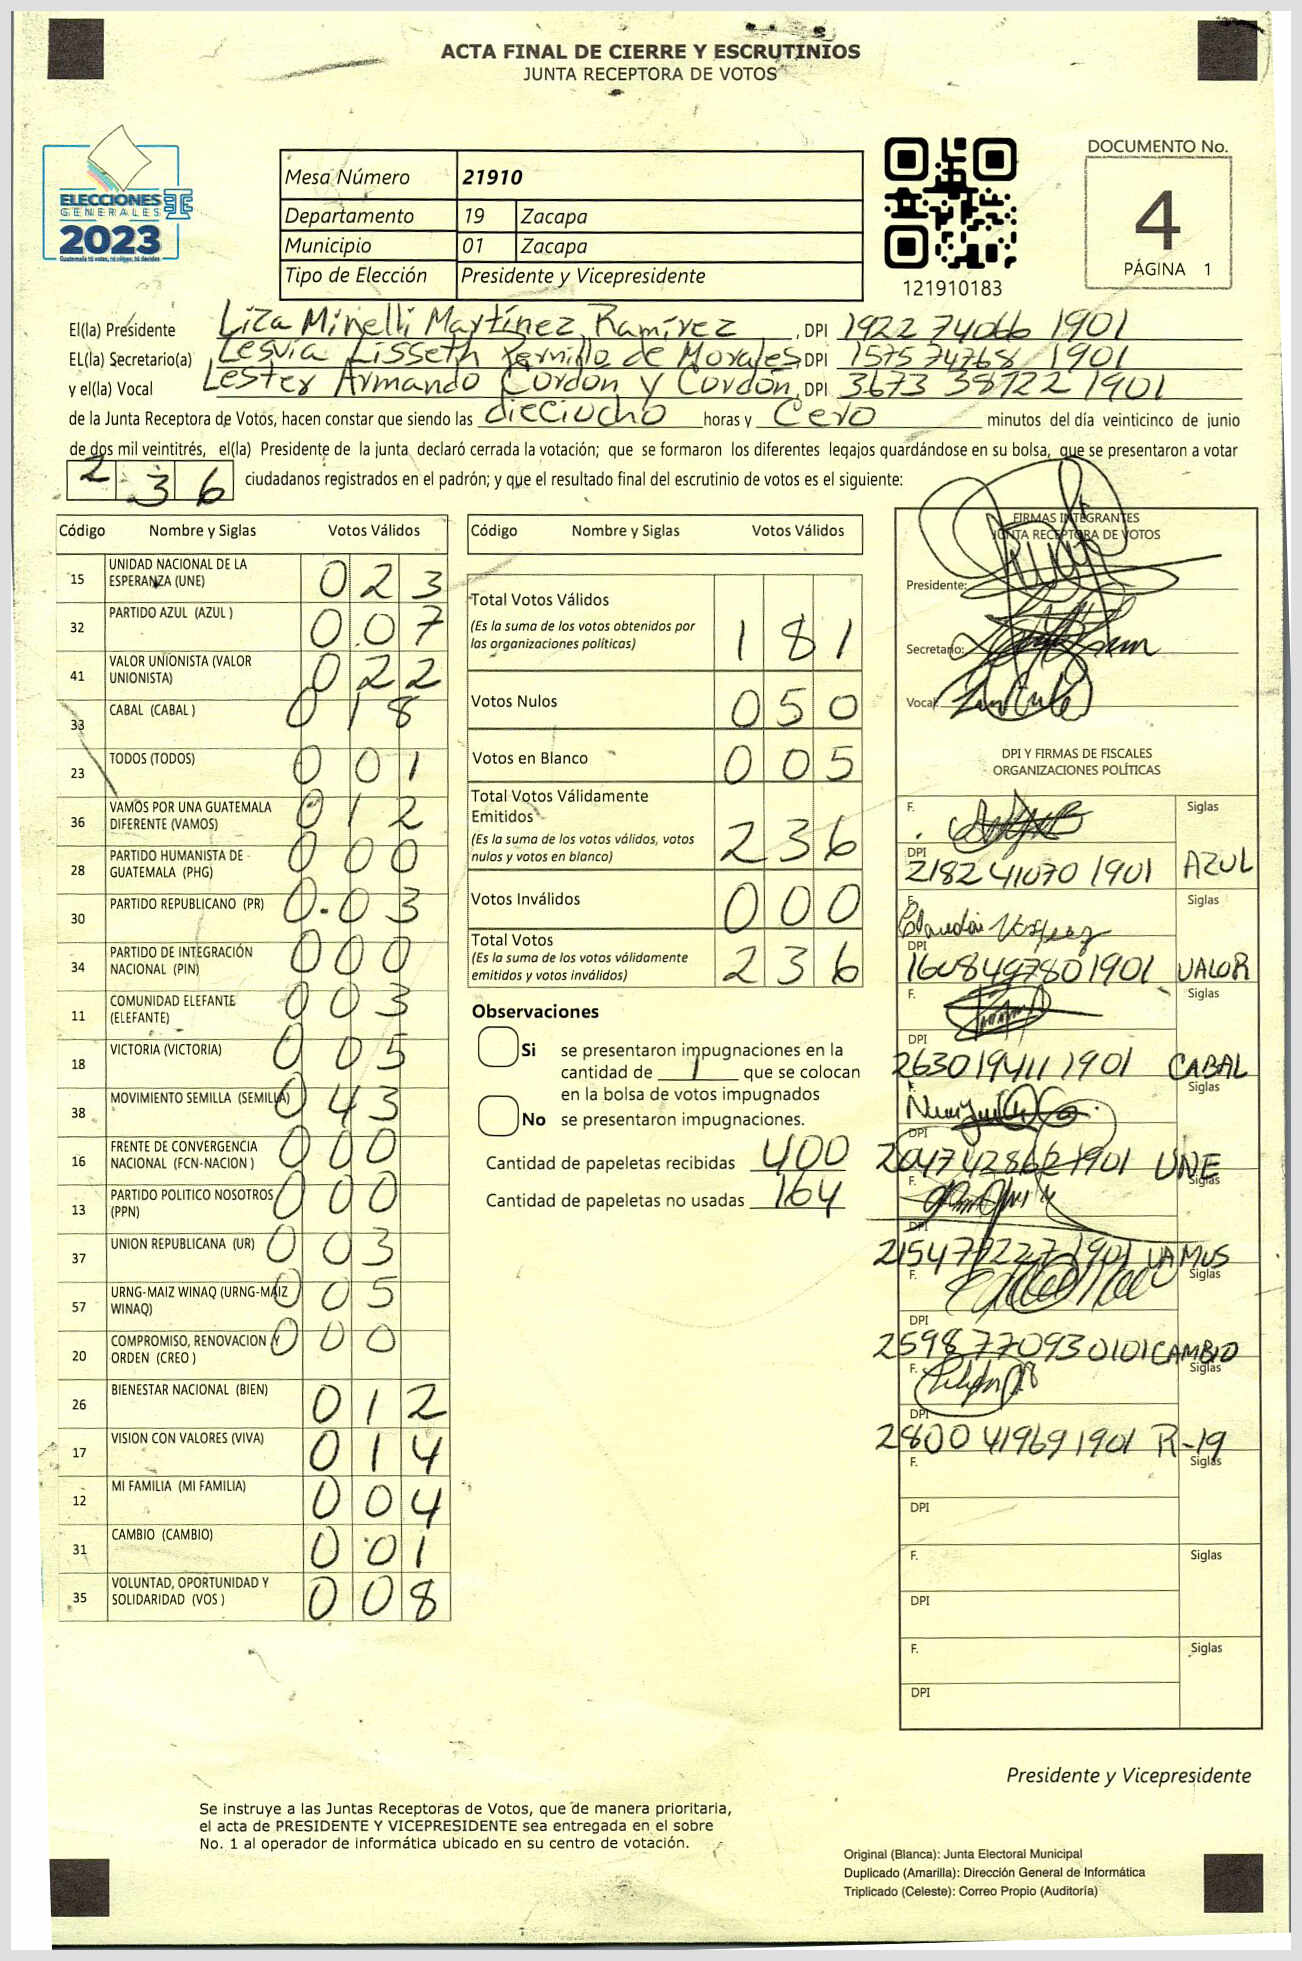 ACTA FINAL DE CIERRE Y ESCRUTINIOS
JUNTA RECEPTORA DE VOTOS
ELECCIONES
GENERALES
2023
Mesa Número 21910
Departamento 19 Zacapa
Municipio 01 Zacapa
Tipo de Elección Presidente y Vicepresidente
121910183
DOCUMENTO No.
4
PÁGINA 1
El(la) Presidente Liza Minelli Martínez Ramírez, DPI 1922 74066 1901
EL(la) Secretario(a) Lesvia Lisseth Pernillo de Morales, DPI 1575 74768 1901
y el(la) Vocal Lester Armando Cordón y Cordón, DPI 3673 38722 1901
de la Junta Receptora de Votos, hacen constar que siendo las dieciocho horas y Cero minutos del día veinticinco de junio
de dos mil veintitrés, el(la) Presidente de la junta declaró cerrada la votación; que se formaron los diferentes legajos guardándose en su bolsa, que se presentaron a votar
236 ciudadanos registrados en el padrón; y que el resultado final del escrutinio de votos es el siguiente:
Código Nombre y Siglas Votos Válidos
15 UNIDAD NACIONAL DE LA ESPERANZA (UNE) 023
32 PARTIDO AZUL (AZUL ) 007
41 VALOR UNIONISTA (VALOR UNIONISTA) 022
33 CABAL (CABAL ) 018
23 TODOS (TODOS) 001
36 VAMOS POR UNA GUATEMALA DIFERENTE (VAMOS) 012
28 PARTIDO HUMANISTA DE GUATEMALA (PHG) 000
30 PARTIDO REPUBLICANO (PR) 003
34 PARTIDO DE INTEGRACIÓN NACIONAL (PIN) 000
11 COMUNIDAD ELEFANTE (ELEFANTE) 003
18 VICTORIA (VICTORIA) 005
38 MOVIMIENTO SEMILLA (SEMILLA) 043
16 FRENTE DE CONVERGENCIA NACIONAL (FCN-NACION ) 000
13 PARTIDO POLITICO NOSOTROS (PPN) 000
37 UNION REPUBLICANA (UR) 003
57 URNG-MAIZ WINAQ (URNG-MAIZ WINAQ) 005
20 COMPROMISO, RENOVACION Y ORDEN (CREO ) 000
26 BIENESTAR NACIONAL (BIEN) 012
17 VISION CON VALORES (VIVA) 014
12 MI FAMILIA (MI FAMILIA) 004
31 CAMBIO (CAMBIO) 001
35 VOLUNTAD, OPORTUNIDAD Y SOLIDARIDAD (VOS ) 008
Código Nombre y Siglas Votos Válidos
Total Votos Válidos
(Es la suma de los votos obtenidos por
las organizaciones políticas) 181
Votos Nulos 050
Votos en Blanco 005
Total Votos Válidamente
Emitidos
(Es la suma de los votos válidos, votos
nulos y votos en blanco) 236
Votos Inválidos 000
Total Votos
(Es la suma de los votos válidamente
emitidos y votos inválidos) 236
Observaciones
Si se presentaron impugnaciones en la
cantidad de 1 que se colocan
en la bolsa de votos impugnados
No se presentaron impugnaciones.
Cantidad de papeletas recibidas 400
Cantidad de papeletas no usadas 164
FIRMAS INTEGRANTES
JUNTA RECEPTORA DE VOTOS
Presidente:
Secretario:
Vocal:
DPI Y FIRMAS DE FISCALES
ORGANIZACIONES POLÍTICAS
F. Siglas
DPI
2182 41070 1901 AZUL
F. Siglas
DPI
1608497801901 VALOR
F. Siglas
DPI
2630194111901 CABAL
F. Siglas
DPI
2047428621901 UNE
F. Siglas
DPI
2154772271901 VAMOS
F. Siglas
DPI
2598770930101 CAMBIO
F. Siglas
DPI
2800 41969 1901 R-19
F. Siglas
DPI
F. Siglas
DPI
F. Siglas
DPI
Presidente y Vicepresidente
Se instruye a las Juntas Receptoras de Votos, que de manera prioritaria,
el acta de PRESIDENTE Y VICEPRESIDENTE sea entregada en el sobre
No. 1 al operador de informática ubicado en su centro de votación.
Original (Blanca): Junta Electoral Municipal
Duplicado (Amarilla): Dirección General de Informática
Triplicado (Celeste): Correo Propio (Auditoría)